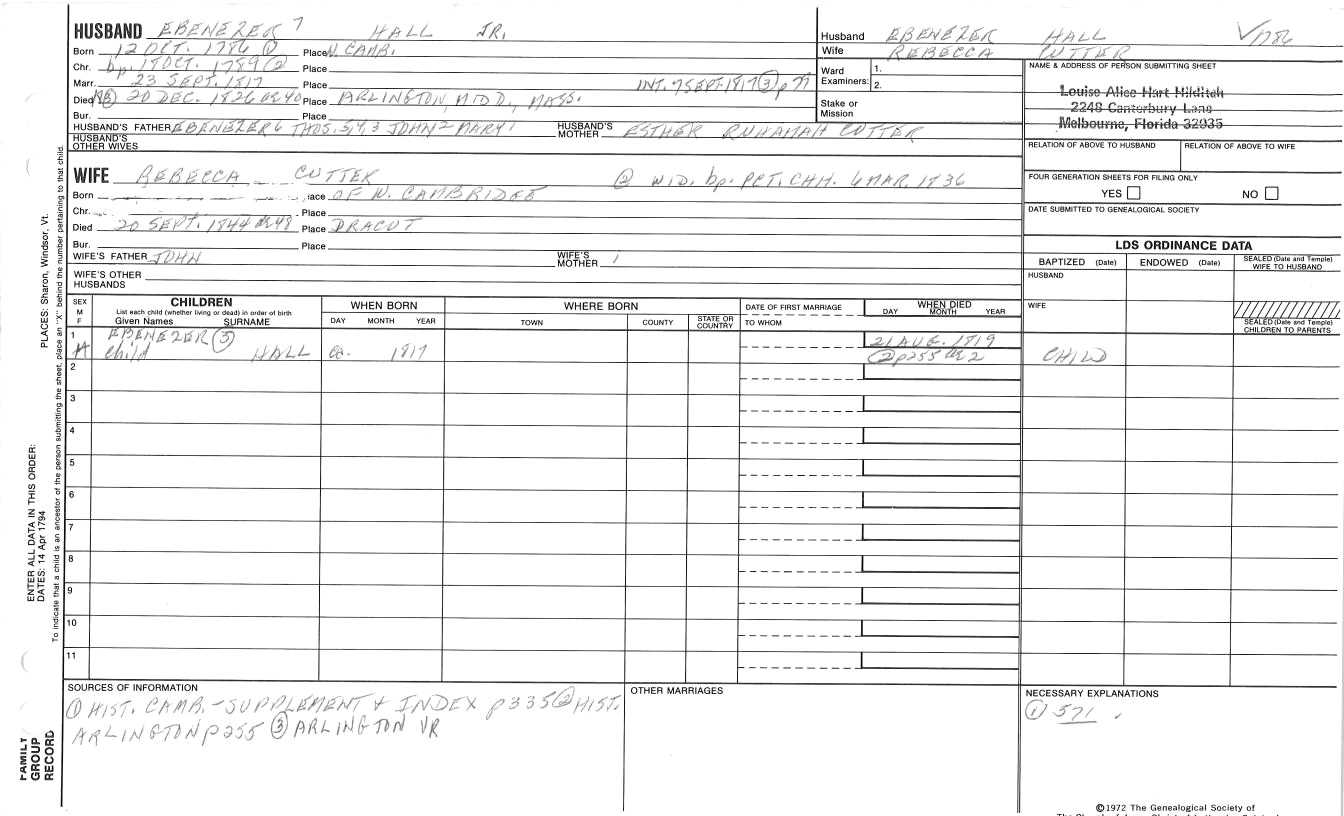 HUSBAND EBENEZER 7 HALL JR.
Born 12 OCT. 1786 ① Place N. CAMB.
Chr. bp. 18 OCT. 1789 ② Place
Marr. 23 SEPT. 1817 Place INT. 7 SEPT. 1817 ③ p 77
Died 20 DEC. 1826 ae 40 Place ARLINGTON, MIDD., MASS.
Bur. Place
HUSBAND'S FATHER EBENEZER 6 THOS. 5, 4, 3 JOHN 2 MARY 1 HUSBAND'S MOTHER ESTHER RUHAMAH CUTTER
HUSBAND'S OTHER WIVES
Husband EBENEZER HALL √1786
Wife REBECCA CUTTER
Ward Examiners: 1.
2.
Stake or Mission
NAME & ADDRESS OF PERSON SUBMITTING SHEET
Louise Alice Hart Hilditch
2248 Canterbury Lane
Melbourne, Florida 32935
RELATION OF ABOVE TO HUSBAND RELATION OF ABOVE TO WIFE
FOUR GENERATION SHEETS FOR FILING ONLY
YES NO
DATE SUBMITTED TO GENEALOGICAL SOCIETY
WIFE REBECCA CUTTER ② WID. bp. PCT. CHH. 6 MAR. 1736
Born ace OF N. CAMBRIDGE
Chr. Place
Died 20 SEPT. 1844 ae 48 Place DRACUT
Bur. Place
WIFE'S FATHER JOHN WIFE'S MOTHER
WIFE'S OTHER HUSBANDS
LDS ORDINANCE DATA
BAPTIZED (Date) ENDOWED (Date) SEALED (Date and Temple) WIFE TO HUSBAND
HUSBAND
WIFE
SEALED (Date and Temple) CHILDREN TO PARENTS
SEX M F CHILDREN List each child (whether living or dead) in order of birth Given Names SURNAME
WHEN BORN DAY MONTH YEAR
WHERE BORN TOWN COUNTY STATE OR COUNTRY
DATE OF FIRST MARRIAGE TO WHOM
WHEN DIED DAY MONTH YEAR
1 EBENEZER ③ 21 AUG. 1819
child HALL ca. 1817 ② p255 ae 2 CHILD
2
3
4
5
6
7
8
9
10
11
SOURCES OF INFORMATION
① HIST. CAMB. - SUPPLEMENT & INDEX p335 ② HIST.
ARLINGTON p255 ③ ARLINGTON VR
OTHER MARRIAGES
NECESSARY EXPLANATIONS
① 571
©1972 The Genealogical Society of
PLACES: Sharon, Windsor, Vt.
ENTER ALL DATA IN THIS ORDER:
DATES: 14 Apr 1794
To indicate that a child is an ancestor of the person submitting the sheet, place an "X" behind the number pertaining to that child.
FAMILY GROUP RECORD